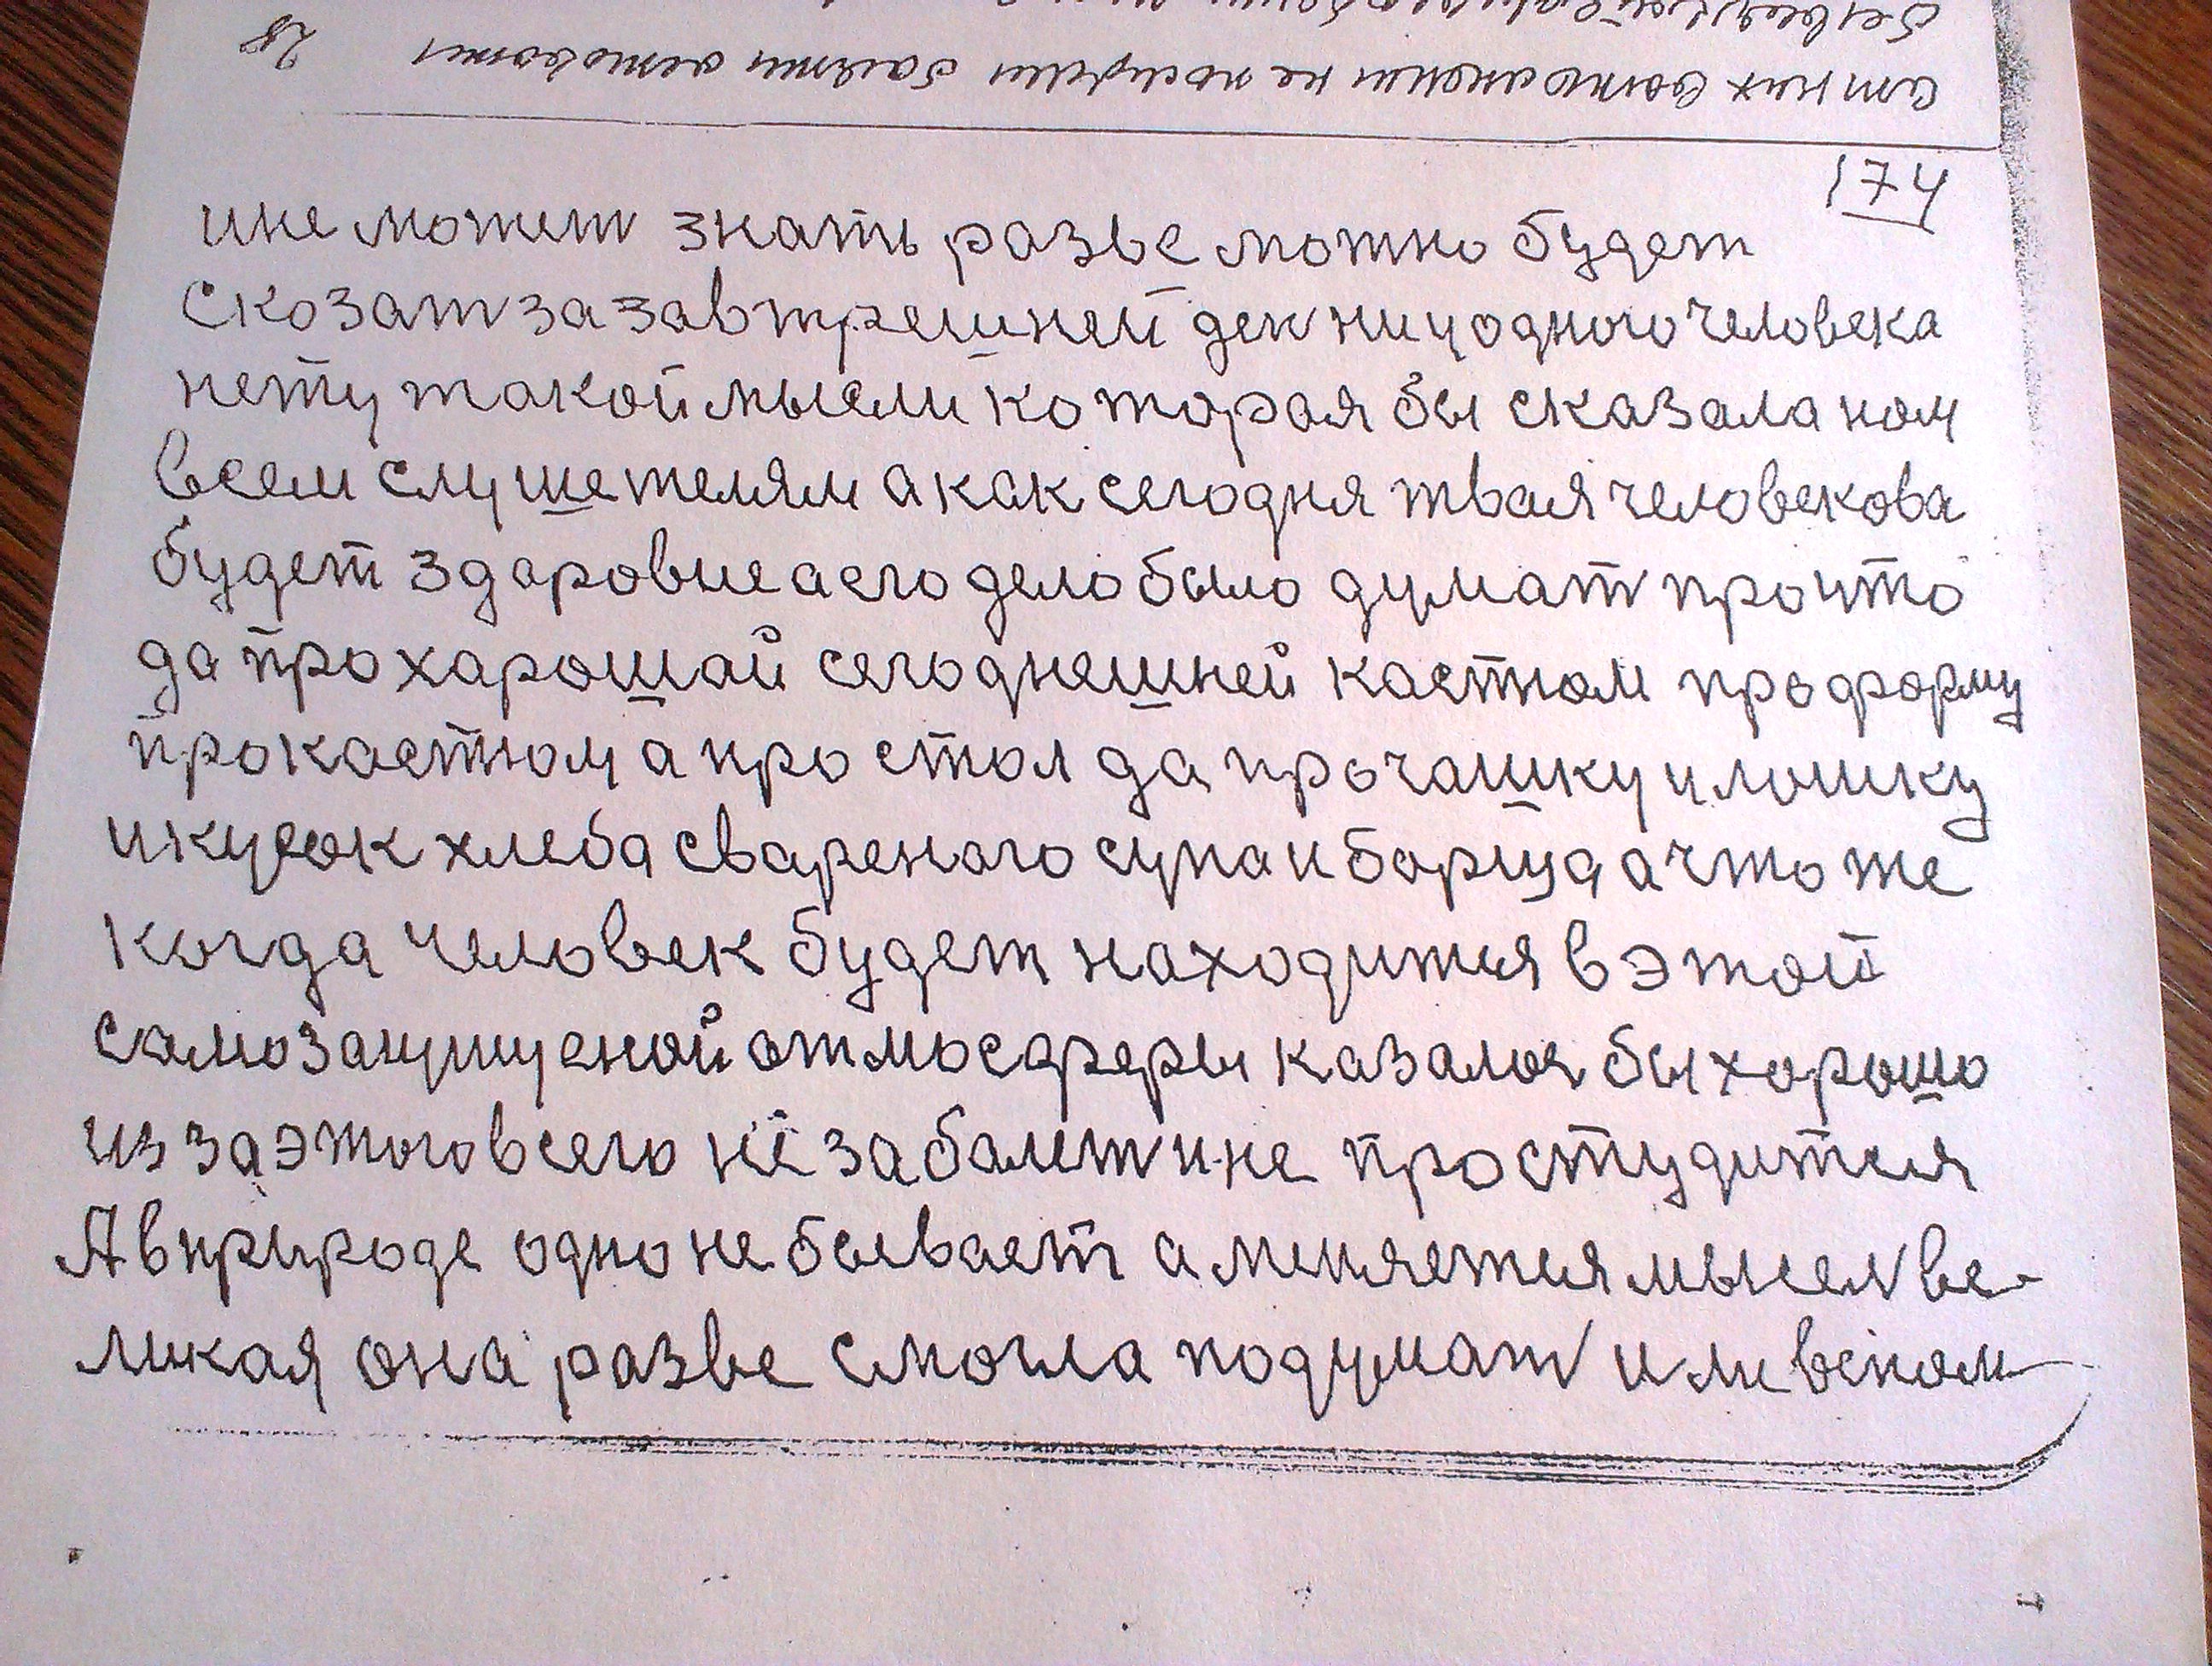 174
ине может знать разве можно будет
сказат за завтрешней ден ни у одного человека
нету такой мысли которая бы сказала нам
всем слушетелям а как сегодня твая человекова
будет здаровие а его дело было думат про што
да про харошай сегоднешней кастюм про форму
про кастюм а про стол да про чашку и лошку
и кусок хлеба свареного супа и борща а что же
когда человек будет находится в этой
самозащищеной атмосферы казалося бы хорошо
из за этого всего не забалет и не простудится
А в природе одно не бывает а меняется мысел ве-
ликая она разве смогла подумат или вспом-